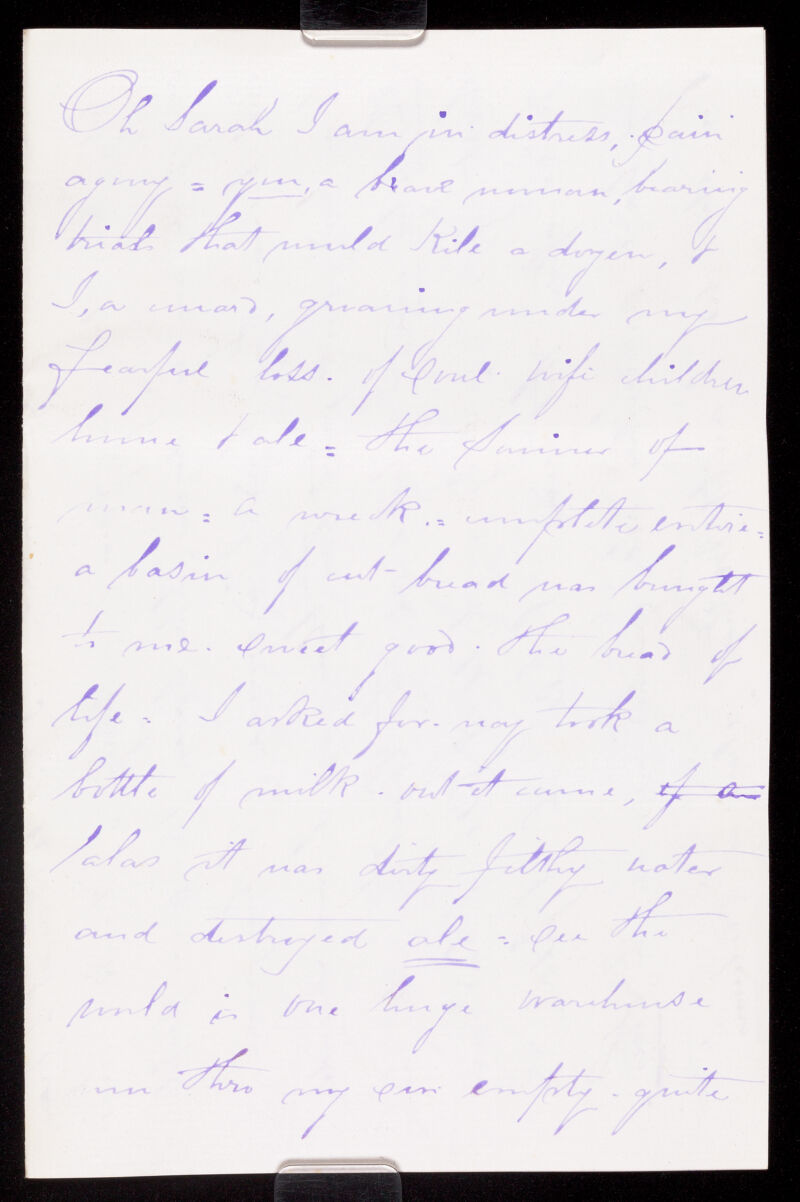 Oh Sarah I am in distress, pain
agony = you, a brave woman, bearing
trials that would kill a dozen, &
I, a coward, groaning under my
fearful loss. of soul. wife children
home & all = the Saviour of
man = a wreck. = complete entire =
a basin of cut bread was brought
to me. sweet good. the bread of
life = I asked for. nay took a
bottle of milk. out it came, of a
/alas it was dirty filthy water
and destroyed all = see the
world is one huge warehouse
now thro my sin empty. quite